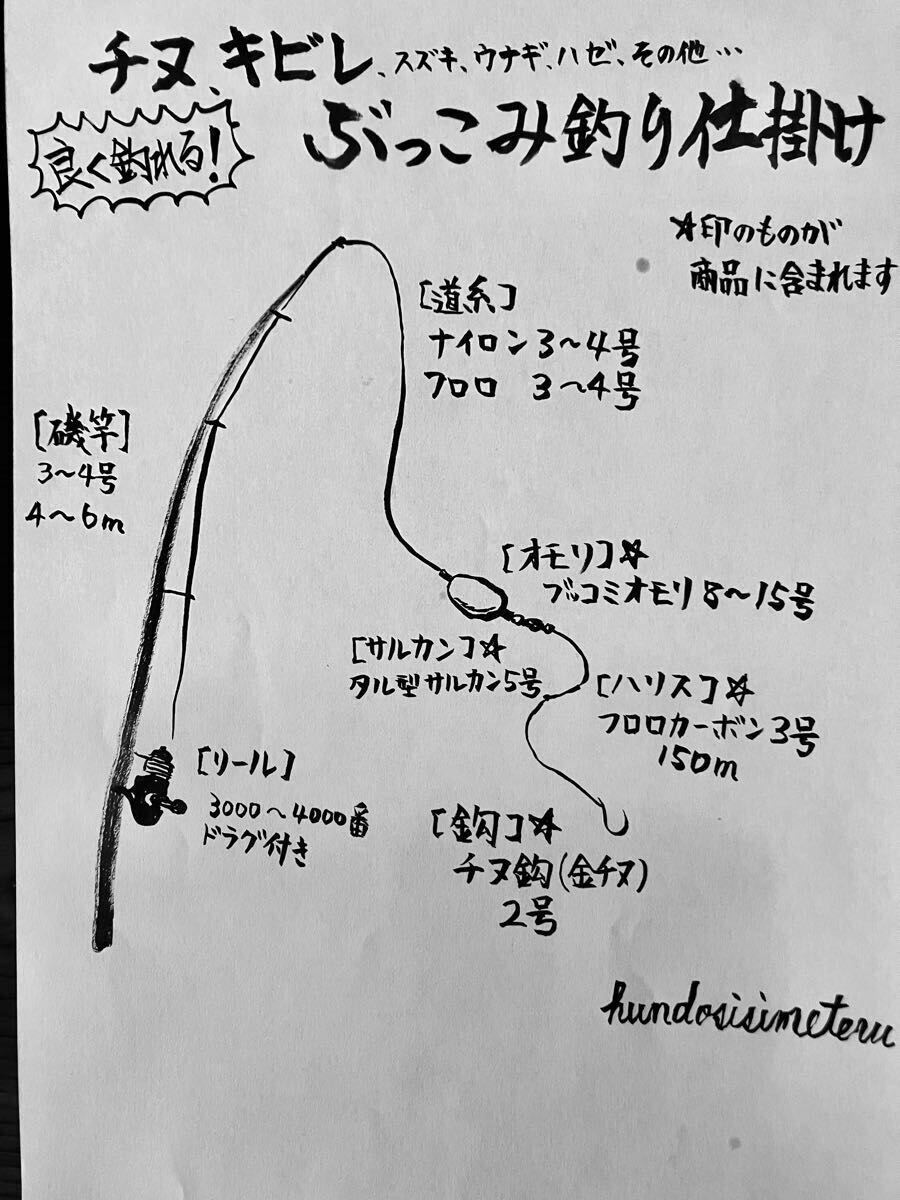 チヌ、キビレ、スズキ、ウナギ、ハゼ、その他…
ぶっこみ釣り仕掛け
良く釣れる!
☆印のものが
商品に含まれます
[道糸]
ナイロン3〜4号
フロロ 3〜4号
[磯竿]
3〜4号
4〜6m
[オモリ]☆
ブッコミオモリ8〜15号
[サルカン]☆
タル型サルカン5号
[ハリス]☆
フロロカーボン3号
150m
[リール]
3000〜4000番
ドラグ付き
[鈎]☆
チヌ鈎(金チヌ)
2号
hundosisimeteru